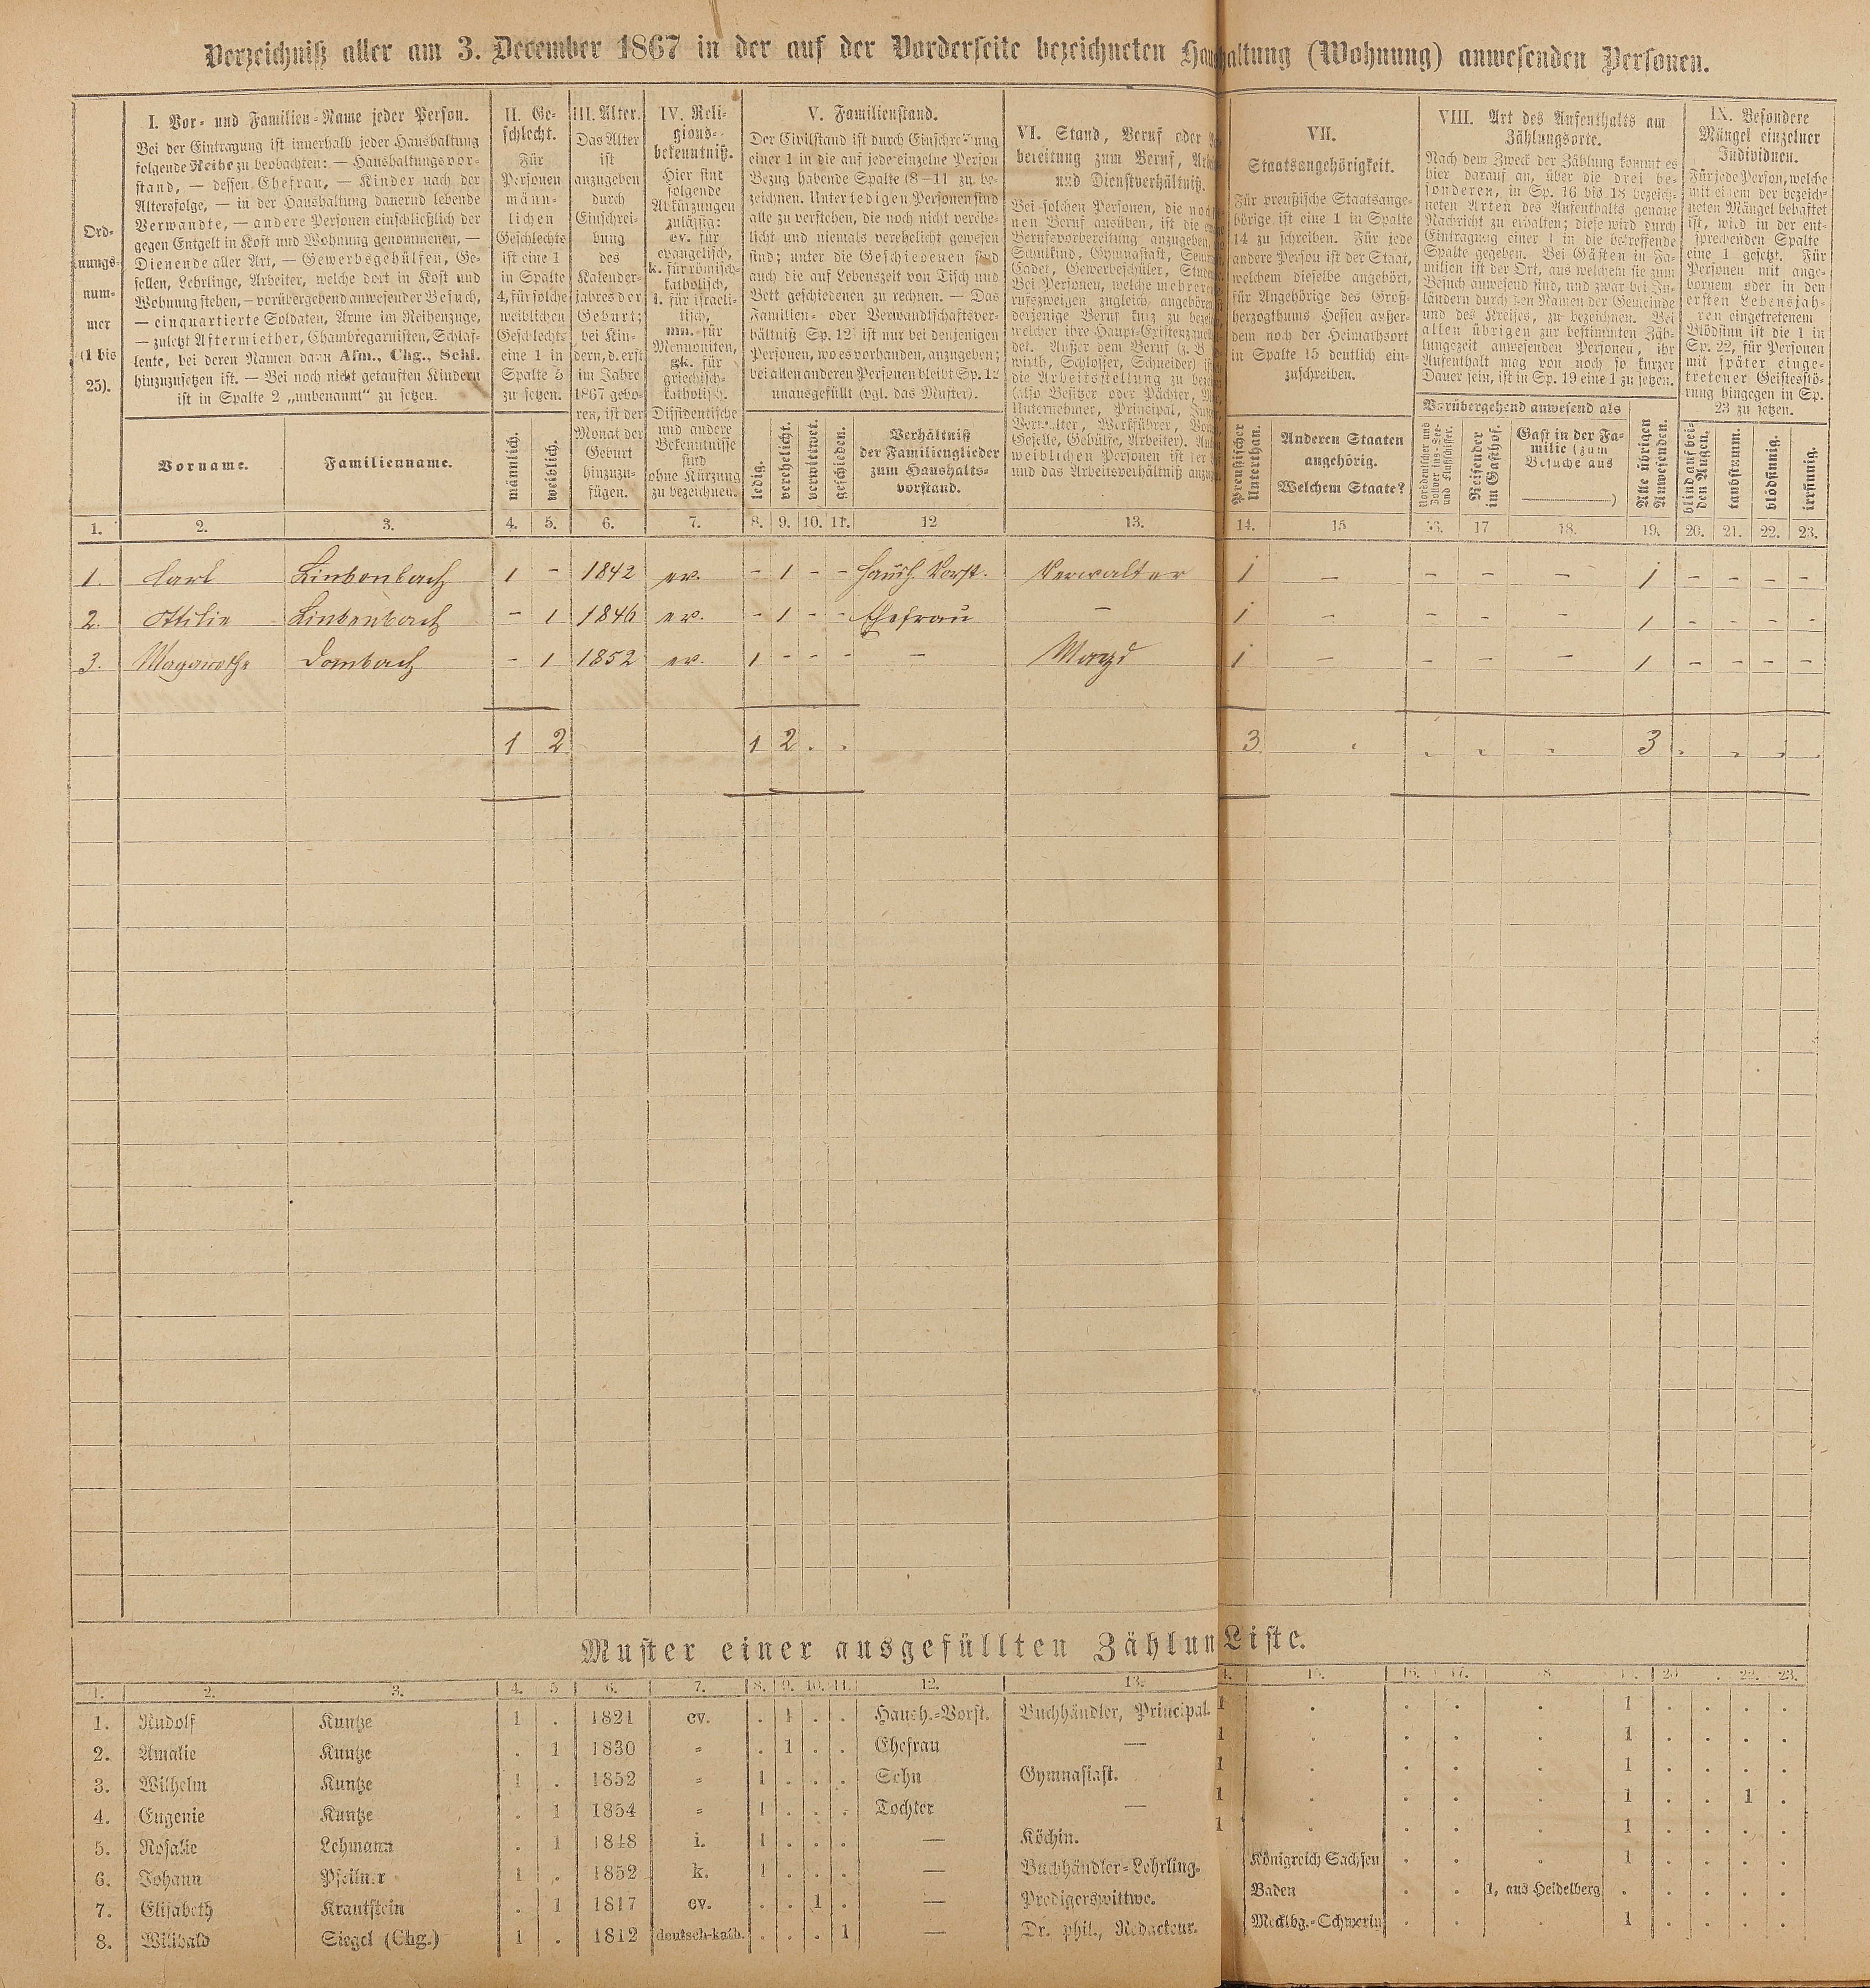 Verzeichniß aller am 3. December 1867 in der auf der Vorderseite bezeichneten Haushaltung (Wohnung) anwesenden Personen.
Ord-
nungs-
num-
mer
(1 bis
25).
I. Vor- und Familien-Name jeder Person.
Bei der Eintragung ist innerhalb jeder Haushaltung
folgende Reihe zu beobachten: — Haushaltungsvor-
stand, — dessen Ehefrau, — Kinder nach der
Altersfolge, — in der Haushaltung dauernd lebende
Verwandte, — andere Personen einschließlich der
gegen Entgelt in Kost und Wohnung genommenen, —
Dienende aller Art, — Gewerbsgehülfen, Ge-
sellen, Lehrlinge, Arbeiter, welche dort in Kost und
Wohnung stehen, — vorübergehend anwesender Besuch,
— einquartierte Soldaten, Arme im Reihenzuge,
— zuletzt Aftermiether, Chambregarnisten, Schlaf-
leute, bei deren Namen dann Afm., Chg., Schl.
hinzuzusetzen ist. — Bei noch nicht getauften Kindern
ist in Spalte 2 „unbenannt“ zu setzen.
Vorname.
Familienname.
II. Ge-
schlecht.
Für
Personen
männ-
lichen
Geschlechts
ist eine 1
in Spalte
4, für solche
weiblichen
Geschlechts
eine 1 in
Spalte 5
zu setzen.
männlich.
weiblich.
III. Alter.
Das Alter
ist
anzugeben
durch
Einschrei-
bung
des
Kalender-
jahres der
Geburt;
bei Kin-
dern, d. erst
im Jahre
1867 gebo-
ren, ist der
Monat der
Geburt
hinzuzu-
fügen.
IV. Reli-
gions-
bekenntniß.
Hier sind
folgende
Abkürzungen
zulässig:
ev. für
evangelisch,
k. für römisch-
katholisch,
i. für israeli-
tisch,
mn. für
Mennoniten,
gk. für
griechisch-
katholisch.
Dissidentische
und andere
Bekenntnisse
sind
ohne Kürzung
zu bezeichnen.
V. Familienstand.
Der Civilstand ist durch Einschreibung
einer 1 in die auf jede einzelne Person
Bezug habende Spalte (8–11) zu be-
zeichnen. Unter ledigen Personen sind
alle zu verstehen, die noch nicht verehe-
licht und niemals verehelicht gewesen
sind; unter die Geschiedenen sind
auch die auf Lebenszeit von Tisch und
Bett geschiedenen zu rechnen. — Das
Familien- oder Verwandtschaftsver-
hältniß (Sp. 12) ist nur bei denjenigen
Personen, wo es vorhanden, anzugeben;
bei allen anderen Personen bleibt Sp. 12
unausgefüllt (vgl. das Muster).
ledig.
verehelicht.
verwittwet.
geschieden.
Verhältniß
der Familienglieder
zum Haushalts-
vorstand.
VI. Stand, Beruf oder
bereitung zum Beruf,
und Dienstverhältniß.
Bei solchen Personen, die noch
nen Beruf ausüben, ist die
Berufsvorbereitung anzugeben,
Schulkind, Gymnasiast,
Cadet, Gewerbeschüler,
Bei Personen, welche mehreren
rufszweigen zugleich angehören
derjenige Beruf kurz zu
welcher ihre Haupt-Existenzquelle
det. Außer dem Beruf (z. B.
wirth, Schlosser, Schneider)
die Arbeitsstellung zu
(also Besitzer oder Pächter,
Unternehmer, Principal,
Verwalter, Werkführer,
Geselle, Gehülfe, Arbeiter).
weiblichen Personen ist der
und das Arbeitsverhältniß
VII.
Staatsangehörigkeit.
Für preußische Staatsange-
hörige ist eine 1 in Spalte
14 zu schreiben. Für jede
andere Person ist der Staat,
welchem dieselbe angehört,
für Angehörige des Groß-
herzogthums Hessen außer-
dem noch der Heimathsort
in Spalte 15 deutlich ein-
zuschreiben.
Preußischer
Unterthan.
Anderen Staaten
angehörig.
Welchem Staate?
VIII. Art des Aufenthalts am
Zählungsorte.
Nach dem Zweck der Zählung kommt es
hier darauf an, über die drei be-
sonderen, in Sp. 16 bis 18 bezeich-
neten Arten des Aufenthalts genaue
Nachricht zu erhalten; diese wird durch
Eintragung einer 1 in die betreffende
Spalte gegeben. Bei Gästen in Fa-
milien ist der Ort, aus welchem sie zum
Besuch anwesend sind, und zwar bei In-
ländern durch den Namen der Gemeinde
und des Kreises, zu bezeichnen. Bei
allen übrigen zur bestimmten Zäh-
lungszeit anwesenden Personen, ihr
Aufenthalt mag von noch so kurzer
Dauer sein, ist in Sp. 19 eine 1 zu setzen.
Vorübergehend anwesend als
Norddeutscher und
Zollvereins-See-
und Flußschiffer.
Reisender
im Gasthof.
Gast in der Fa-
milie (zum
Besuche aus
)
Alle übrigen
Anwesenden.
IX. Besondere
Mängel einzelner
Individuen.
Für jede Person, welche
mit einem der bezeich-
neten Mängel behaftet
ist, wird in der ent-
sprechenden Spalte
eine 1 gesetzt. Für
Personen mit ange-
bornem oder in den
ersten Lebensjah-
ren eingetretenem
Blödsinn ist die 1 in
Sp. 22, für Personen
mit später einge-
tretener Geistesstö-
rung hingegen in Sp.
23 zu setzen.
blind auf bei-
den Augen.
taubstumm.
blödsinnig.
irrsinnig.
1. 2. 3. 4. 5. 6. 7. 8. 9. 10. 11. 12 13. 14. 15 16. 17 18. 19. 20. 21. 22. 23.
1. Carl Linbenbach 1 - 1842 ev. - 1 - - Haush. Vorst. Verwalter 1 - - - - 1 - - - -
2. Ottilie Linbenbach - 1 1846 ev. - 1 - - Ehefrau - 1 - - - - 1 - - - -
3. Magarethe Dombach - 1 1852 ev. 1 - - - - Magd 1 - - - - 1 - - - -
1 2 1 2 . . 3 . . . . 3 . . . .
Muster einer ausgefüllten Zählun Liste.
1. 2. 3. 4. 5 6. 7. 8. 9. 10. 11. 12. 13. 4. 15. 16. 17. 8 1 . 20 . 22. 23.
1. Rudolf Kuntze 1 . 1821 ev. . 1 . . Haush.-Vorst. Buchhändler, Principal. 1 . . . . 1 . . . .
2. Amalie Kuntze . 1 1830 = . 1 . . Ehefrau — 1 . . . . 1 . . . .
3. Wilhelm Kuntze 1 . 1852 = 1 . . . Sohn Gymnasiast. 1 . . . . 1 . . . .
4. Eugenie Kuntze . 1 1854 = 1 . . . Tochter — 1 . . . . 1 . . 1 .
5. Rosalie Lehmann . 1 1848 i. 1 . . . — Köchin. 1 . . . . 1 . . . .
6. Johann Pfeilner 1 . 1852 k. 1 . . . — Buchhändler-Lehrling. Königreich Sachsen . . . 1 . . . .
7. Elisabeth Krautstein . 1 1817 ev. . . 1 . — Predigerswittwe. Baden . . 1, aus Heidelberg . . . . .
8. Willibald Siegel (Chg.) 1 . 1812 deutsch-kath. . . . 1 — Dr. phil., Redacteur. Mecklbg.-Schwerin . . . 1 . . . .